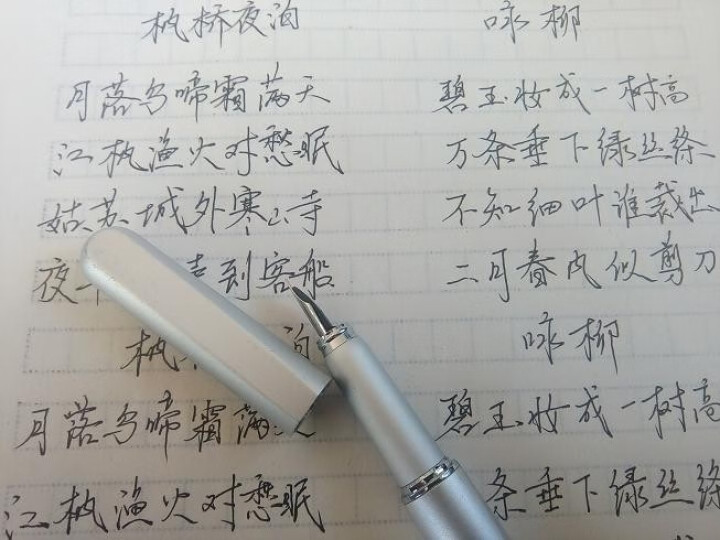 枫桥夜泊
月落乌啼霜满天
江枫渔火对愁眠
姑苏城外寒山寺
夜 到客船
枫 泊
月落乌啼霜满
江枫渔火对愁眠
咏柳
碧玉妆成一树高
万条垂下绿丝绦
不知细叶谁裁出
二月春风似剪刀
咏柳
碧玉妆成一树高
条垂下绿丝绦